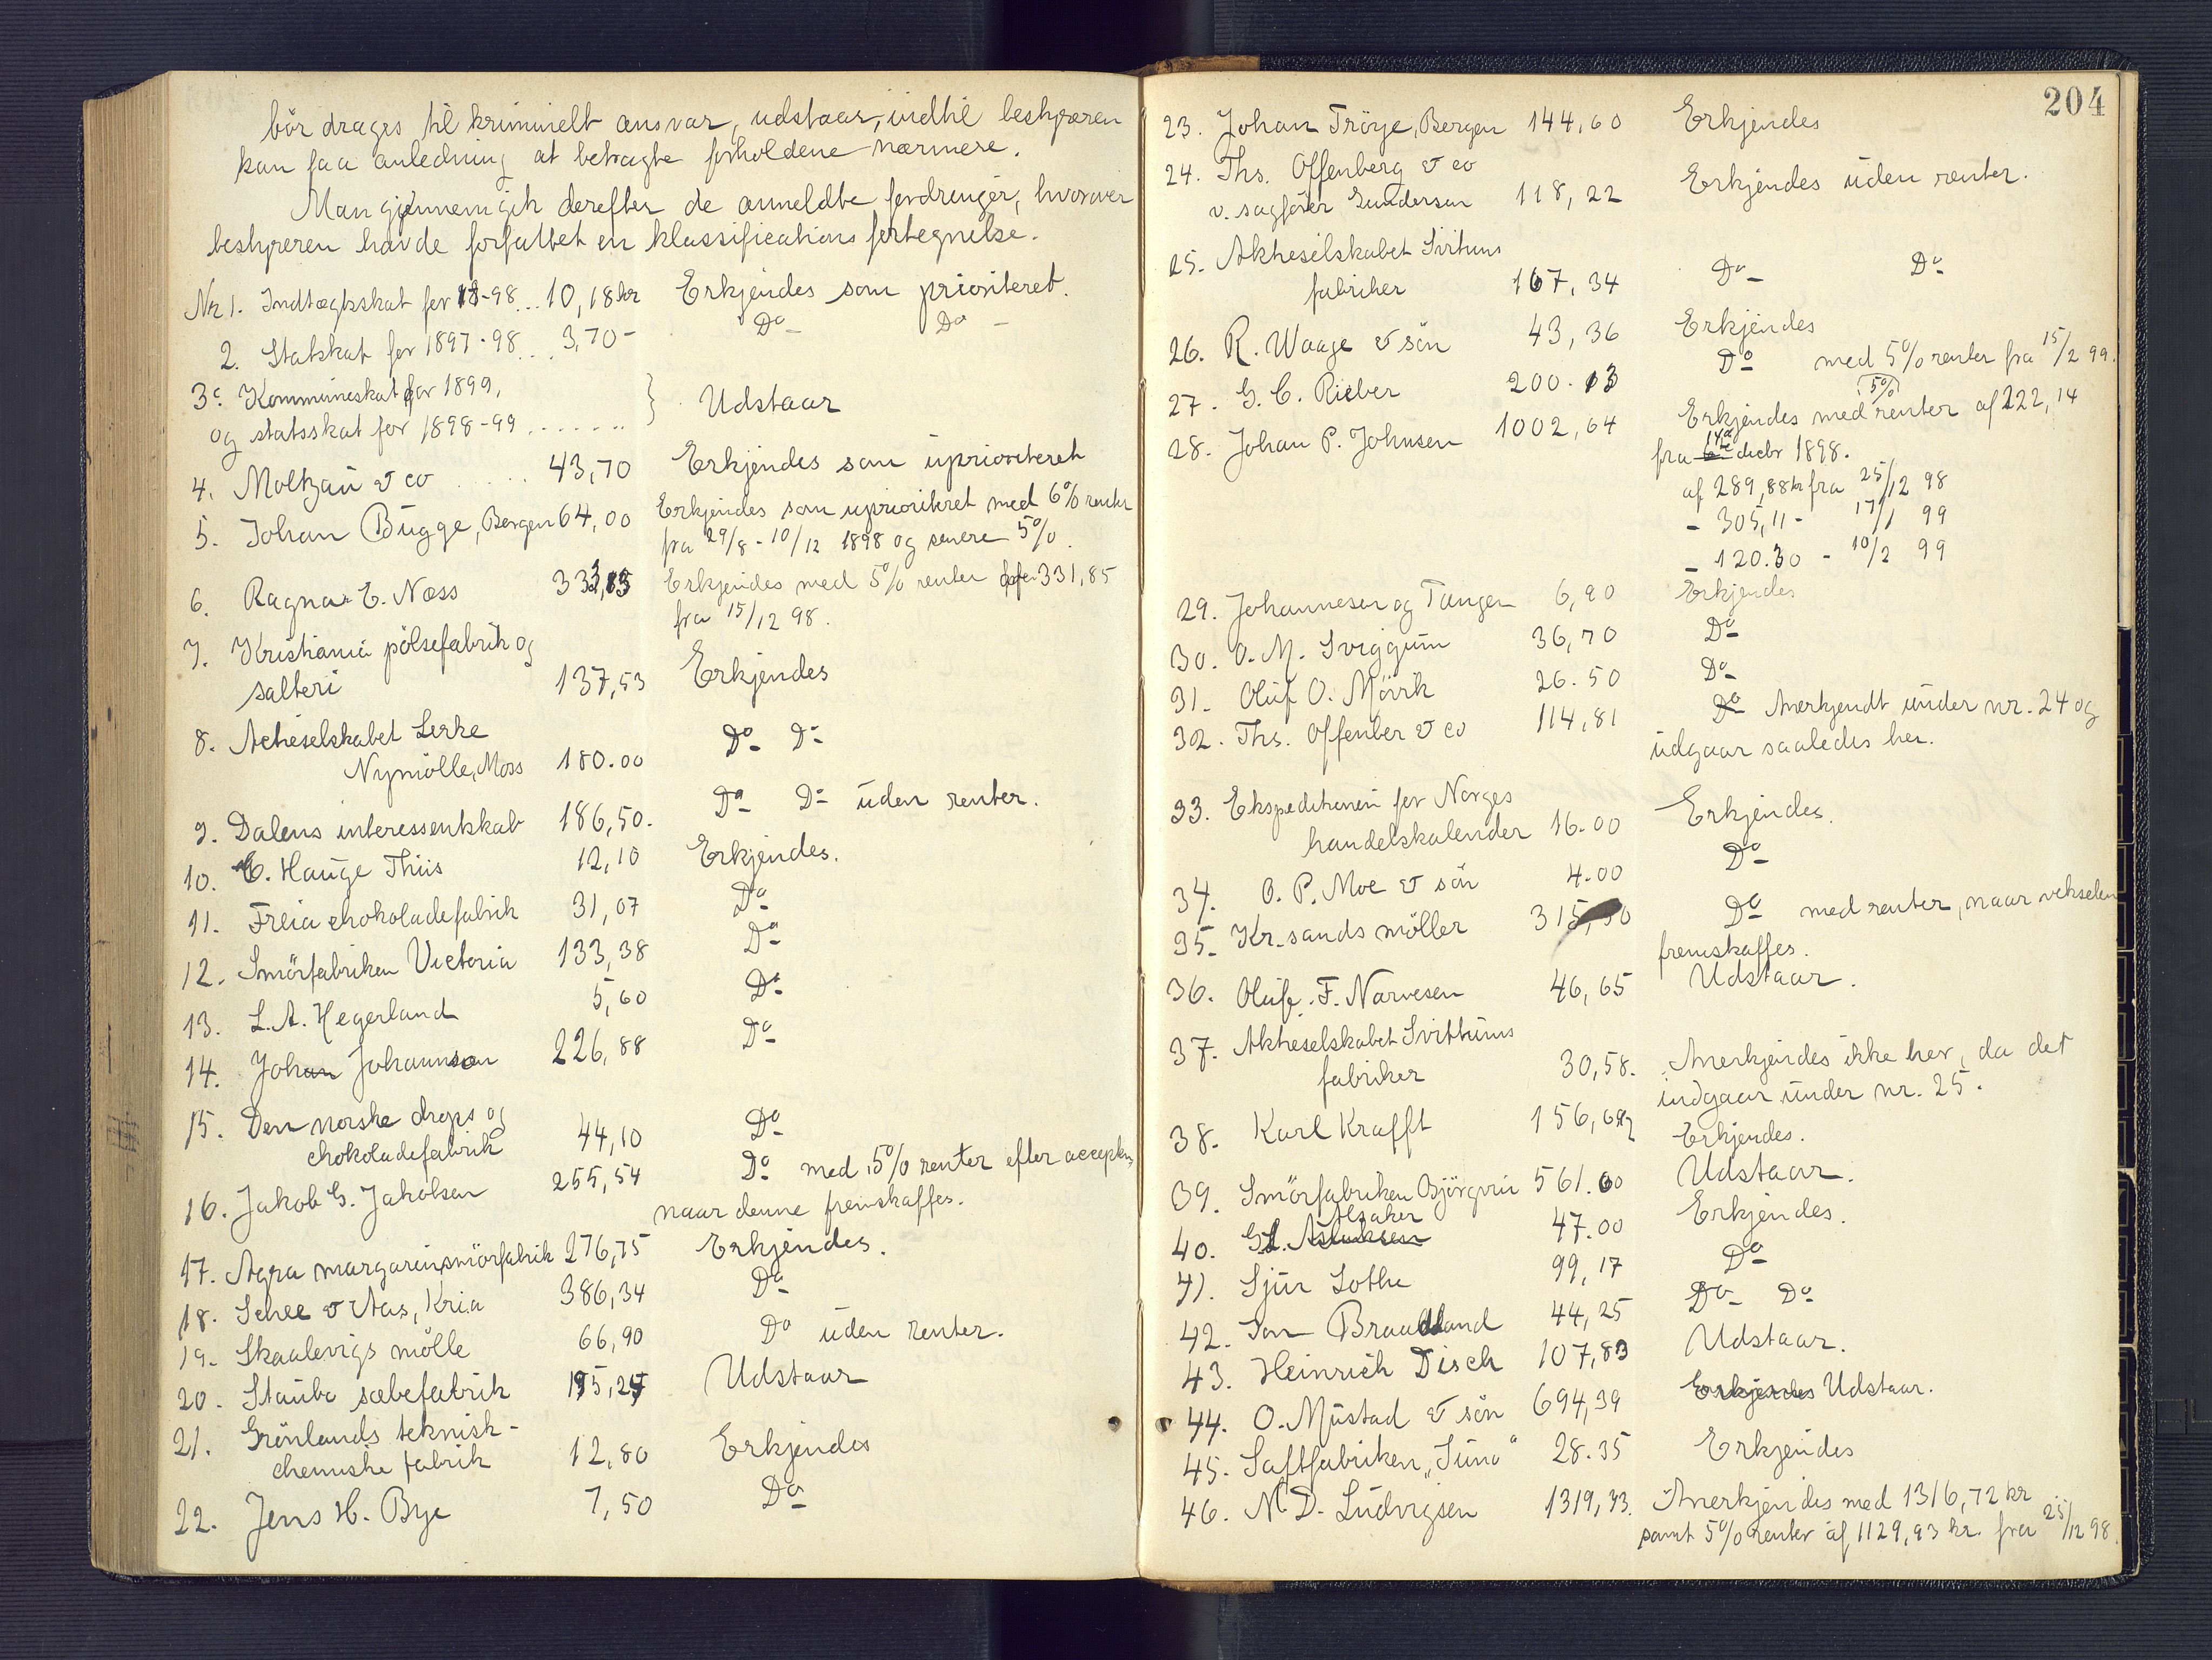 bör drages til kriminelt ansvar, udstaar, indtil bestyreren
kan faa anledning at betragte forholdene nærmere.
Man gjennemgik derefter de anmeldte fordringer, hvorover
bestyreren havde forfattet en klassifications fortegnelse.
Nr 1. Indtægtsskat for 97-98... 10,18 kr Erkjendes som prioriteret.
2. Statskat for 1897-98... 3,70 - Do - Do -
3. Kommuneskat for 1899,
og statsskat for 1898-99 ....... } Udstaar
4. Moltzau & co ..... 43,70 Erkjendes som uprioriteret
5. Johan Bügge, Bergen 64,00 Erkjendes som uprioriteret med 6% renter
fra 29/8 - 10/12 1898 og senere 5%.
6. Ragnar E. Næss 333,85 Erkjendes med 5% renter af 331,85
fra 15/12 98.
7. Kristiania pölsefabrik og
salteri 137,53 Erkjendes
8. Actieselskabet Lerke
Nymölle, Moss 180.00 Do Do
9. Dalens interessentskab 186,50. Do Do uden renter.
10. C. Hauge Thiis 12,10 Erkjendes.
11. Freia chokoladefabrik 31,07 Do
12. Smörfabriken Victoria 133,38 Do
13. L. A. Hegerland 5,60 Do
14. Johan Johannsen 226,88 Do
15. Den norske drops og
chokoladefabrik 44,10 Do
16. Jakob G. Jakobsen 255,54 Do med 5% renter efter accepten,
naar denne fremskaffes.
17. Agra margarinsmörfabrik 276,75 Erkjendes.
18. Schee & Aas, Kria 386,34 Do
19. Skaalevigs mölle 66,90 Do uden renter.
20. Staubo sæbefabrik 195,27 Udstaar
21. Grönlands teknisk-
chemiske fabrik 12,80 Erkjendes
22. Jens H. Bye 7,50 Do
204
23. Johan Tröye, Bergen 144,60 Erkjendes
24. Ths. Offenberg & co
v. sagförer Gundersen 118,22 Erkjendes uden renter.
25. Aktieselskabet Svithuns
fabriker 167,34 Do Do
26. R. Waage & sön 43,36 Erkjendes
27. G. C. Rieber 200.13 Do med 5% renter fra 15/2 99.
28. Johan P. Johnsen 1002,64 Erkjendes med 5% renter af 222,14
fra 14de decbr 1898.
af 289,88 kr fra 25/12 98
- 305,11 - 17/1 99
- 120.30 - 10/2 99
29. Johannesen og Tangen 6,90 Erkjendes
30. O. M. Sviggum 36,70 Do
31. Oluf O. Mövik 26.50 Do
32. Ths. Offenber & co 114,81 Do Anerkjendt under nr. 24 og
udgaar saaledes her.
33. Ekspeditionen for Norges
handelskalender 16.00 Erkjendes.
34. O. P. Moe & sön 4.00 Do
35. Kr.sands möller 315,50 Do med renter, naar vekselen
fremskaffes.
36. Oluf F. Narvesen 46,65 Udstaar.
37. Aktieselskabet Svithuns
fabriker 30,58. Anerkjendes ikke her, da det
indgaar under nr. 25.
38. Karl Krafft 156,69 Erkjendes.
39. Smörfabriken Björgvin 561.60 Udstaar.
40. G. A. Alsaker 47.00 Erkjendes.
41. Sjur Lothe 99,17 Do
42. Jon Braadland 44,25 Do Do
43. Heinrich Disch 107,83 Udstaar.
44. O. Mustad & sön 694,39 Erkjendes Udstaar.
45. Saftfabriken „Juno“ 28.35 Erkjendes
46. N. D. Ludvigsen 1319,33. Anerkjendes med 1316,72 kr
samt 5% renter af 1129,93 kr. fra 25/12 98